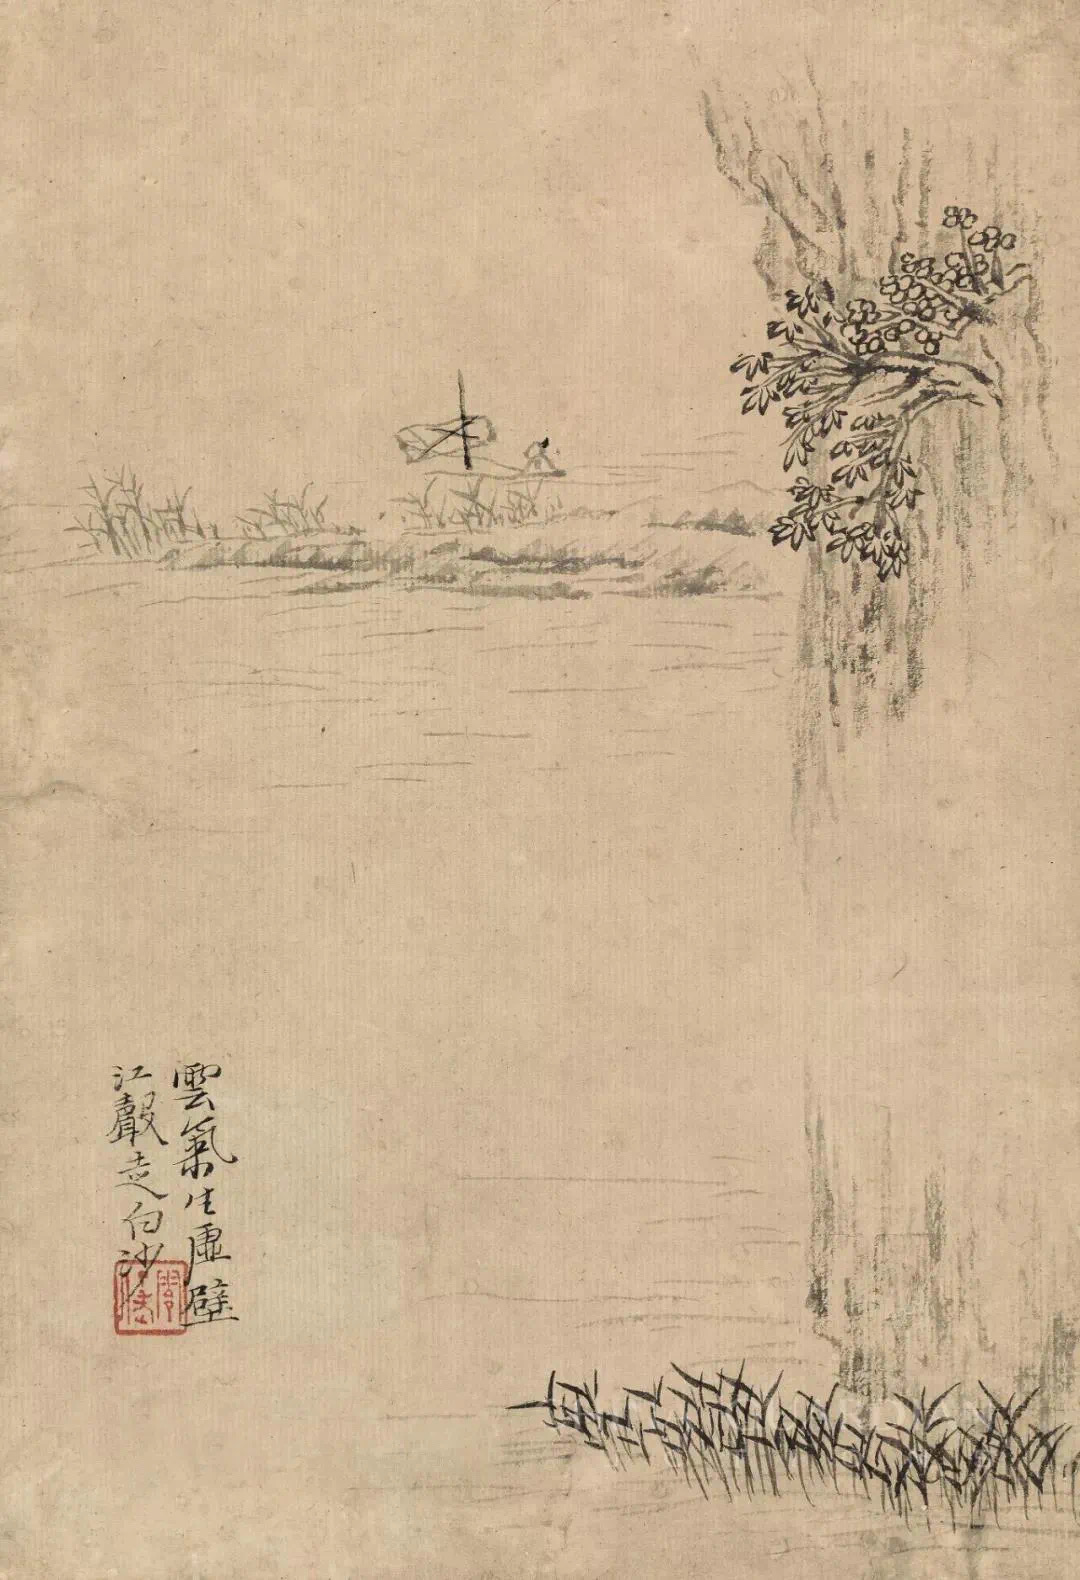 雲氣生虛壁
江聲走白沙